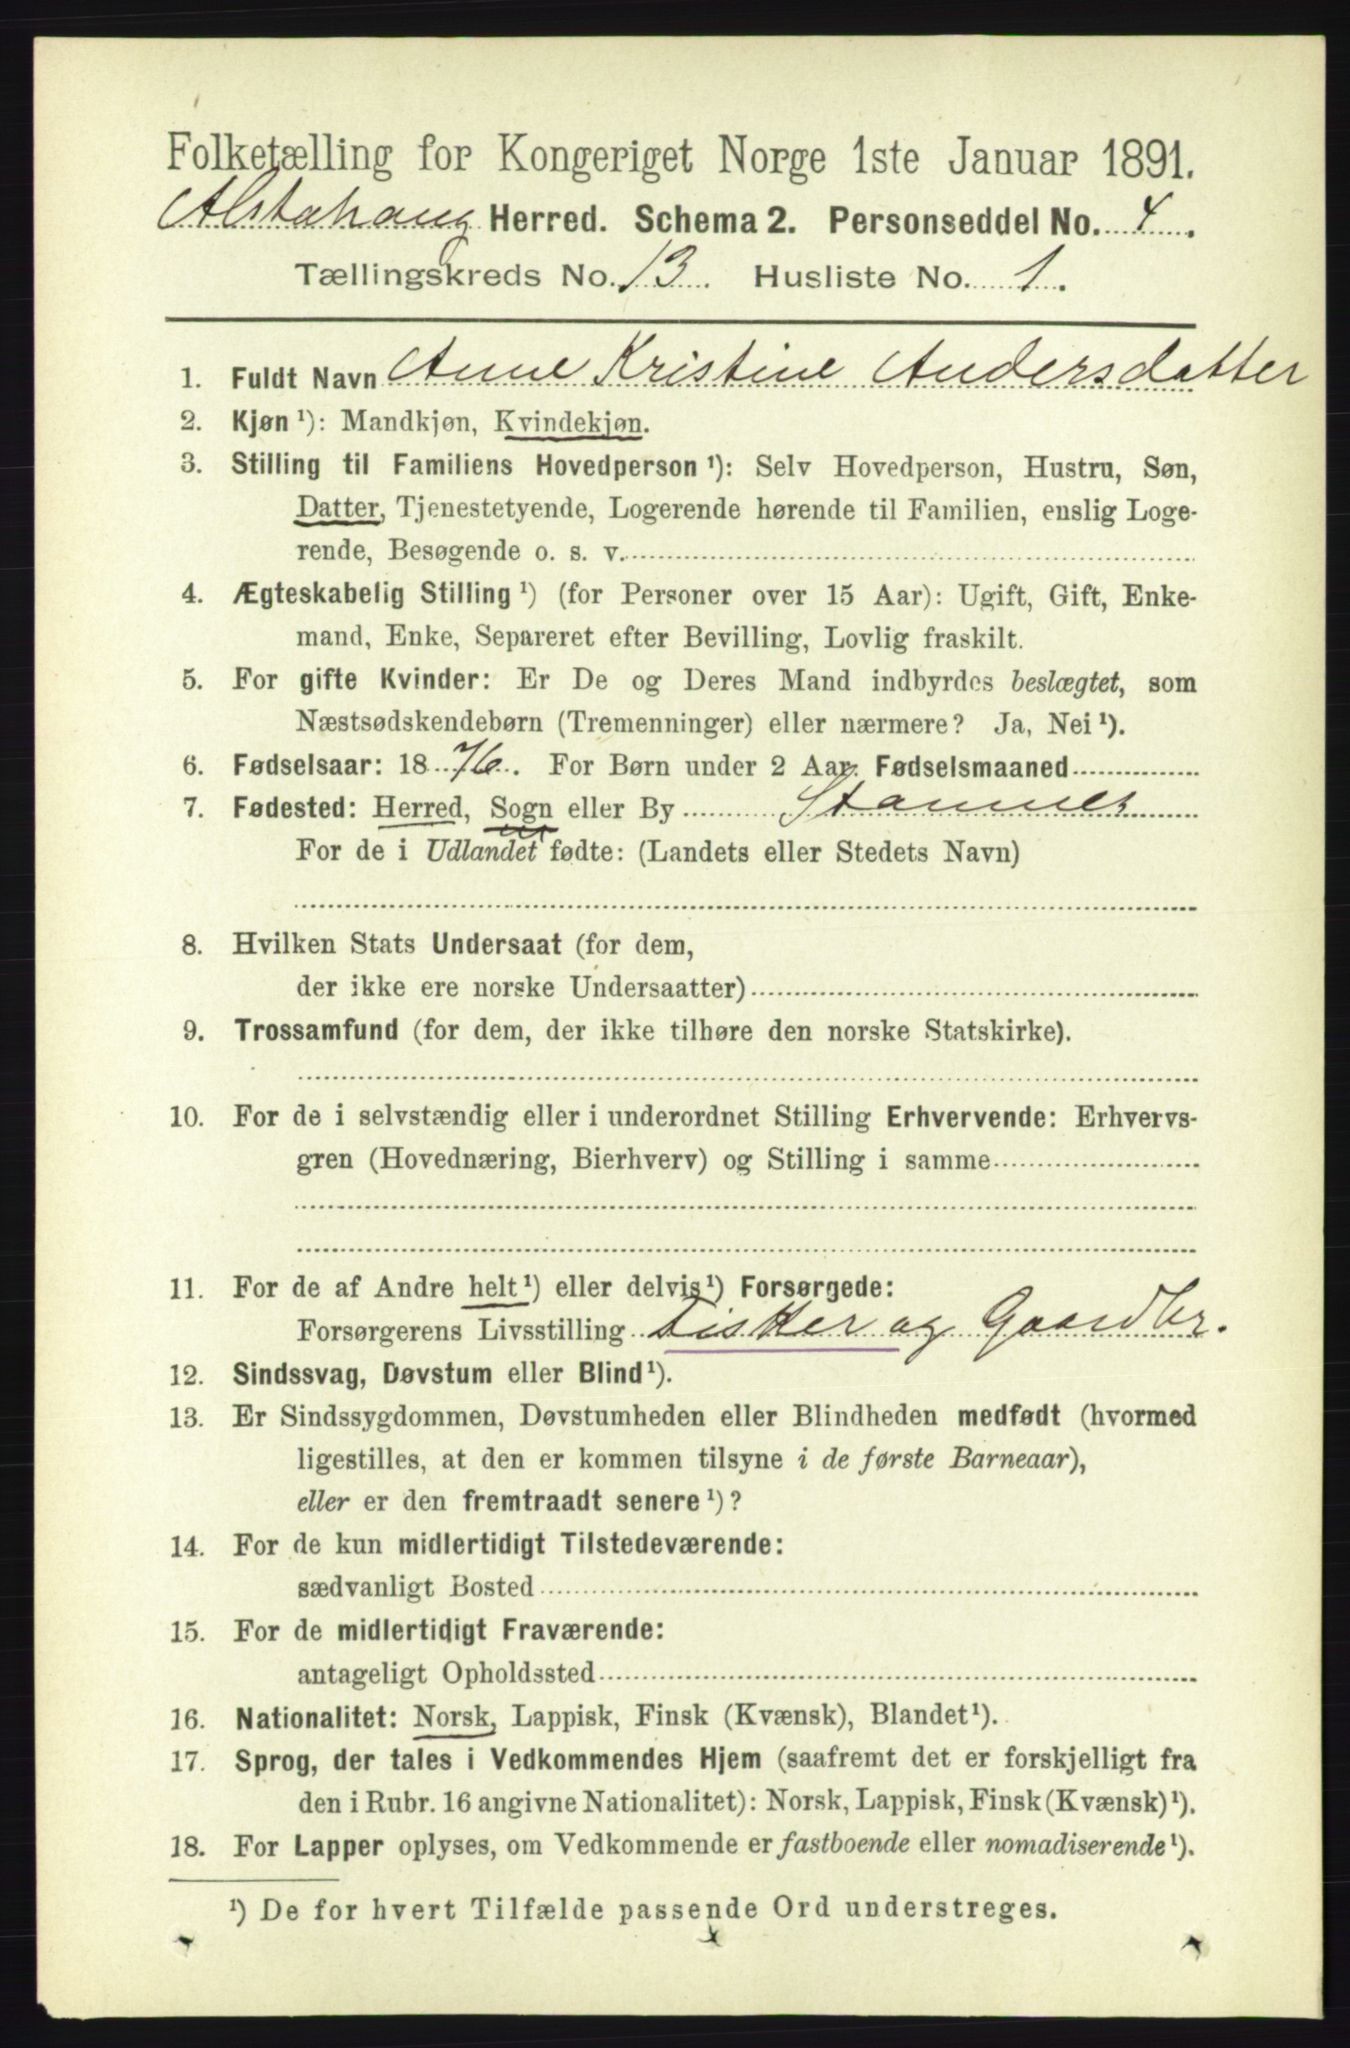 Folketælling for Kongeriget Norge 1ste Januar 1891.
Alstahaug Herred. Schema 2. Personseddel No. 4.
Tællingskreds No. 13. Husliste No. 1.
1. Fuldt Navn Anne Kristine Andersdatter
2. Kjøn ¹): Mandkjøn, Kvindekjøn.
3. Stilling til Familiens Hovedperson ¹): Selv Hovedperson, Hustru, Søn,
Datter, Tjenestetyende, Logerende hørende til Familien, enslig Loge-
rende, Besøgende o. s. v.
4. Ægteskabelig Stilling ¹) (for Personer over 15 Aar): Ugift, Gift, Enke-
mand, Enke, Separeret efter Bevilling, Lovlig fraskilt.
5. For gifte Kvinder: Er De og Deres Mand indbyrdes beslægtet, som
Næstsødskendebørn (Tremenninger) eller nærmere? Ja, Nei ¹).
6. Fødselsaar: 1876. For Børn under 2 Aar. Fødselsmaaned
7. Fødested: Herred, Sogn eller By Stamnes
For de i Udlandet fødte: (Landets eller Stedets Navn)
8. Hvilken Stats Undersaat (for dem,
der ikke ere norske Undersaatter)
9. Trossamfund (for dem, der ikke tilhøre den norske Statskirke).
10. For de i selvstændig eller i underordnet Stilling Erhvervende: Erhvervs-
gren (Hovednæring, Bierhverv) og Stilling i samme
11. For de af Andre helt ¹) eller delvis ¹) Forsørgede:
Forsørgerens Livsstilling Fisker og Gaardbr.
12. Sindssvag, Døvstum eller Blind ¹).
13. Er Sindssygdommen, Døvstumheden eller Blindheden medfødt (hvormed
ligestilles, at den er kommen tilsyne i de første Barneaar),
eller er den fremtraadt senere ¹)?
14. For de kun midlertidigt Tilstedeværende:
sædvanligt Bosted
15. For de midlertidigt Fraværende:
antageligt Opholdssted
16. Nationalitet: Norsk, Lappisk, Finsk (Kvænsk), Blandet ¹).
17. Sprog, der tales i Vedkommendes Hjem (saafremt det er forskjelligt fra
den i Rubr. 16 angivne Nationalitet): Norsk, Lappisk, Finsk (Kvænsk) ¹).
18. For Lapper oplyses, om Vedkommende er fastboende eller nomadiserende ¹).
¹) De for hvert Tilfælde passende Ord understreges.